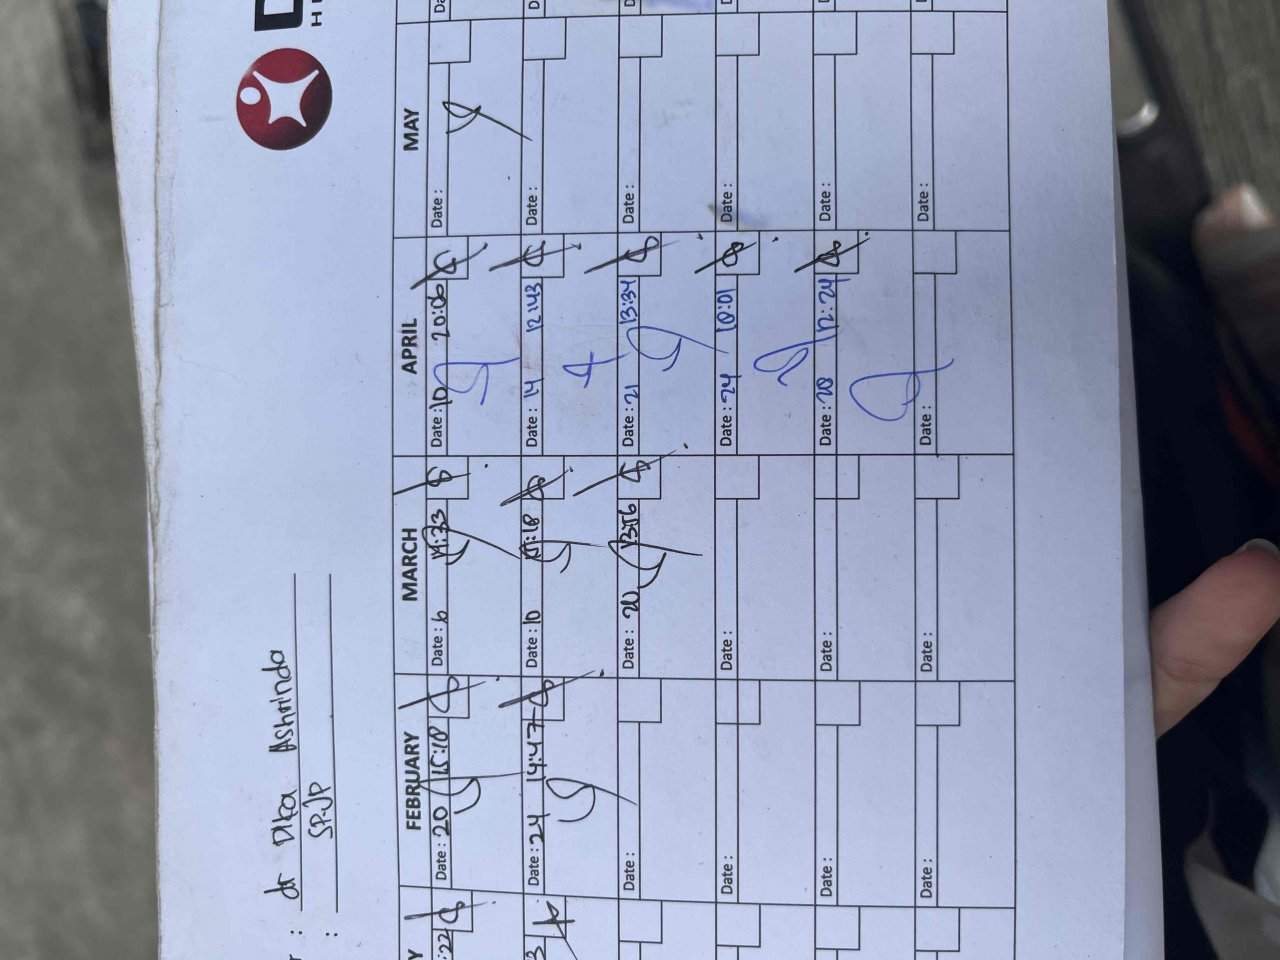 dr Dika Ashrinda
SP.JP
FEBRUARY MARCH APRIL MAY
Date: 20 15:18
Date: 6
Date: 10 20:06
Date:
Date: 24 14:47
Date: 10
Date: 14 12:43
Date:
Date:
Date: 20 13:56
Date: 21 13:34
Date:
Date:
Date:
Date: 24
Date:
Date:
Date:
Date: 28 12:24
Date:
Date:
Date:
Date:
Date: